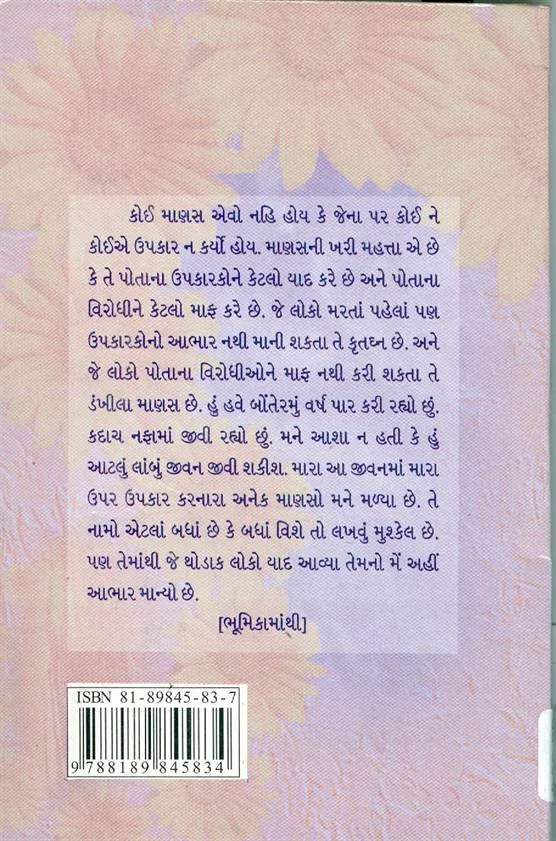 કોઈ માણસ એવો નહિ હોય કે જેના પર કોઈ ને
કોઈએ ઉપકાર ન કર્યો હોય. માણસની ખરી મહત્તા એ છે
કે તે પોતાના ઉપકારકોને કેટલો યાદ કરે છે અને પોતાના
વિરોધીને કેટલો માફ કરે છે. જે લોકો મરતાં પહેલાં પણ
ઉપકારકોનો આભાર નથી માની શકતા તે કૃતઘ્ન છે. અને
જે લોકો પોતાના વિરોધીઓને માફ નથી કરી શકતા તે
ડંખીલા માણસ છે. હું હવે બોંતેરમું વર્ષ પાર કરી રહ્યો છું.
કદાચ નફામાં જીવી રહ્યો છું. મને આશા ન હતી કે હું
આટલું લાંબું જીવન જીવી શકીશ. મારા આ જીવનમાં મારા
ઉપર ઉપકાર કરનારા અનેક માણસો મને મળ્યા છે. તે
નામો એટલાં બધાં છે કે બધાં વિશે તો લખવું મુશ્કેલ છે.
પણ તેમાંથી જે થોડાક લોકો યાદ આવ્યા તેમનો મેં અહીં
આભાર માન્યો છે.
[ભૂમિકામાંથી]
ISBN 81-89845-83-7
9 788189 845834